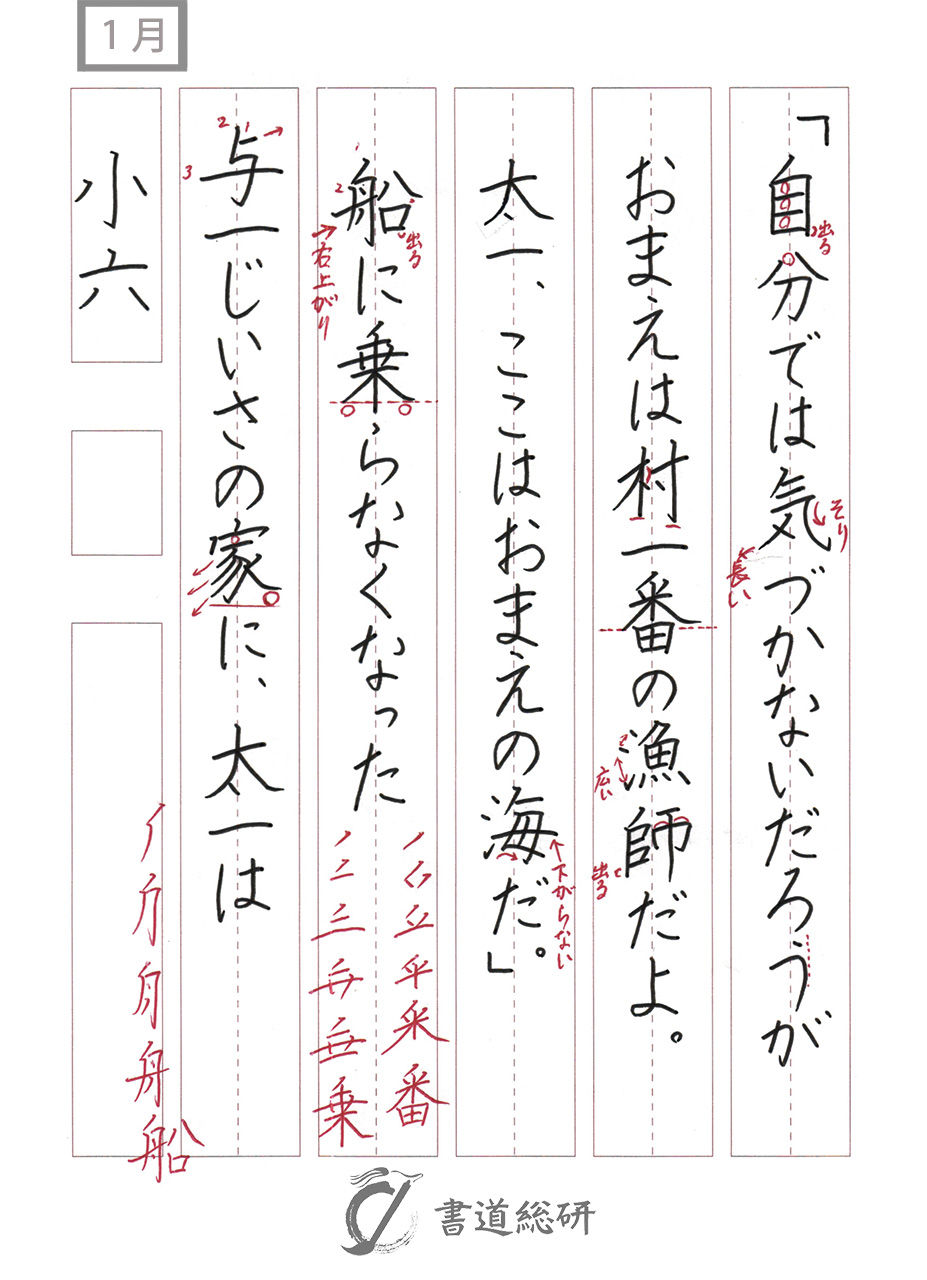 1月
「自分では気づかないだろうが
出る
そり
長い
おまえは村一番の漁師だよ。
広い
出る
太一、ここはおまえの海だ。」
下がらない
船に乗らなくなった
1
2
出る
右上がり
与一じいさの家に、太一は
1
2
3
小六
書道総研